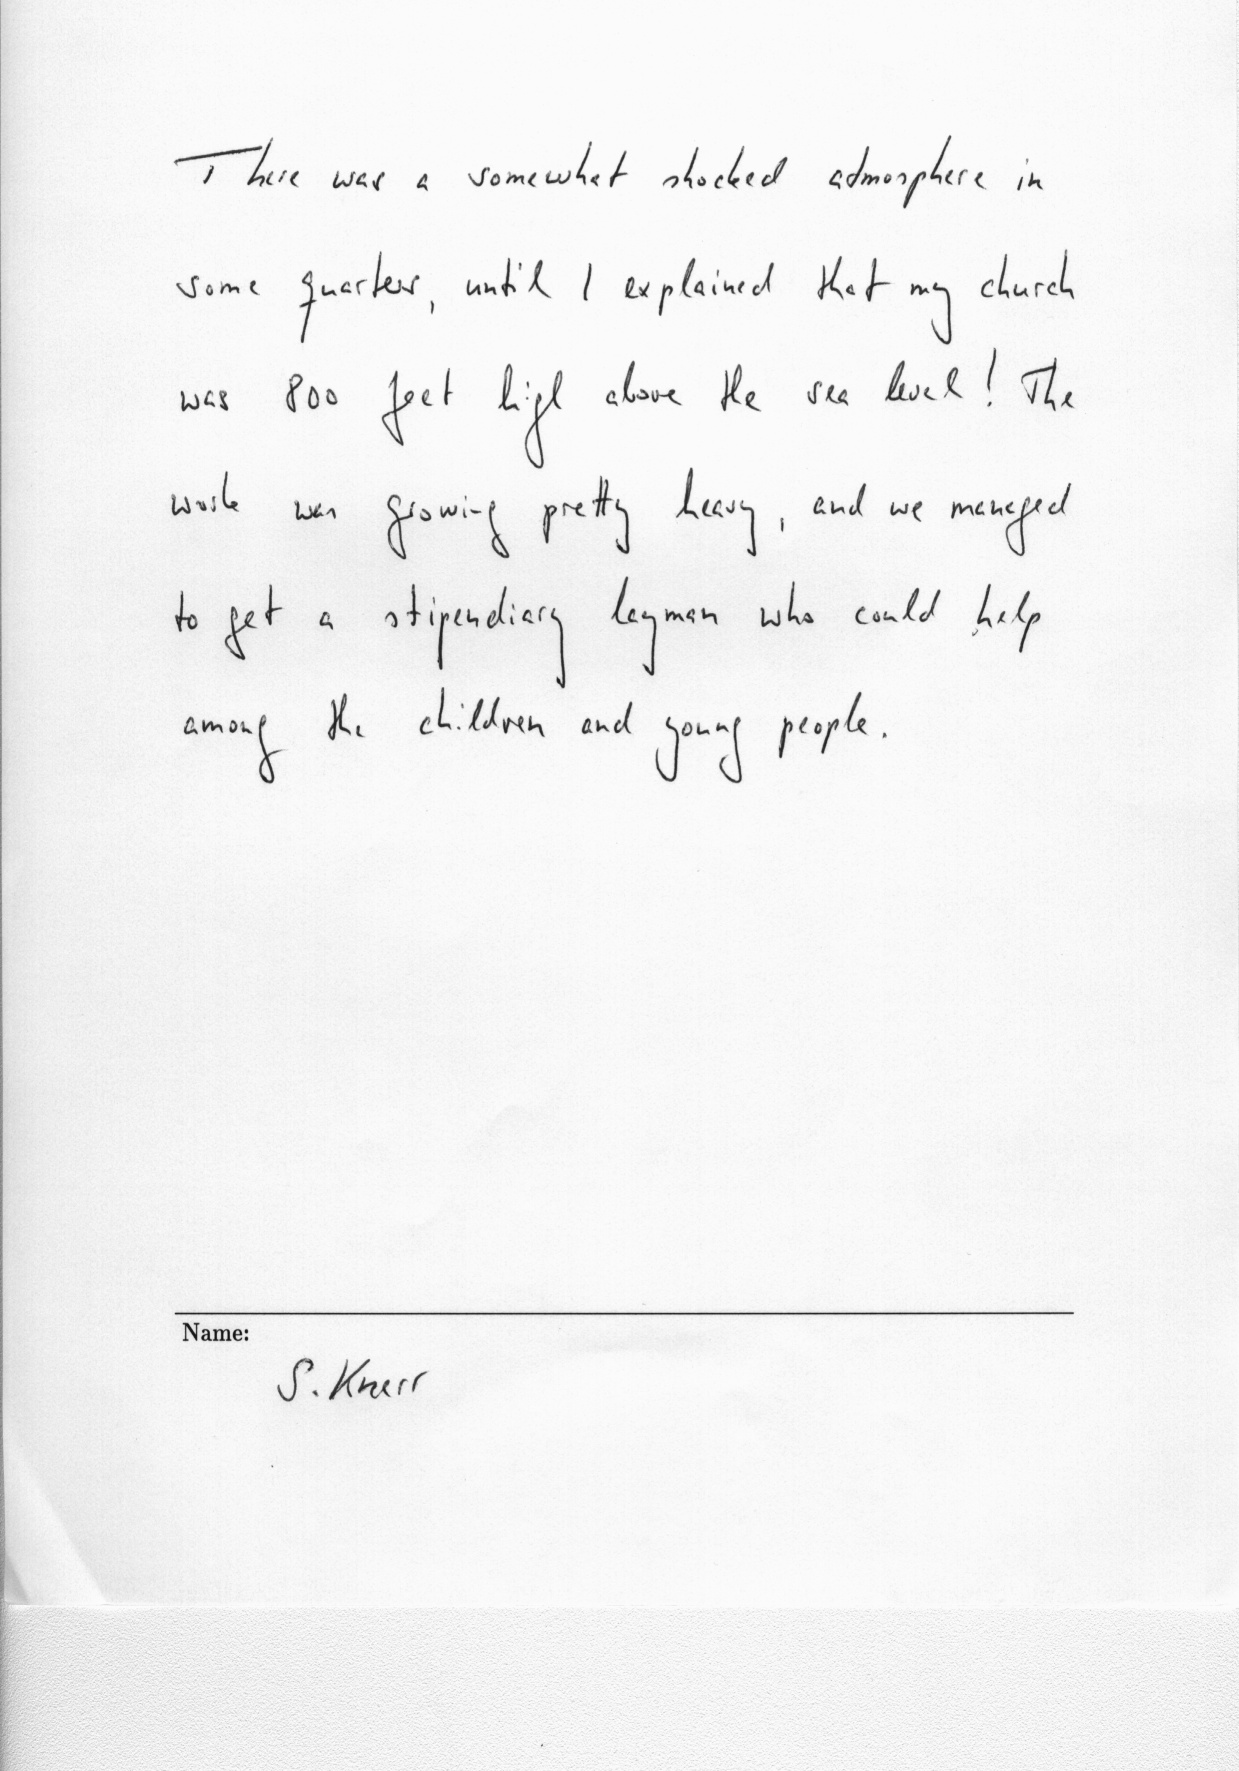 There was a somewhat shocked atmosphere in
some quarters, until I explained that my church
was 800 feet high above the sea level! The
work was growing pretty heavy, and we managed
to get a stipendiary layman who could help
among the children and young people.
Name:
S. Knerr